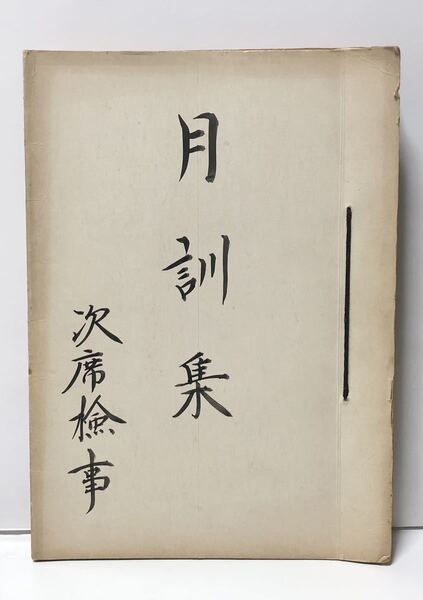 月訓集
次席検事